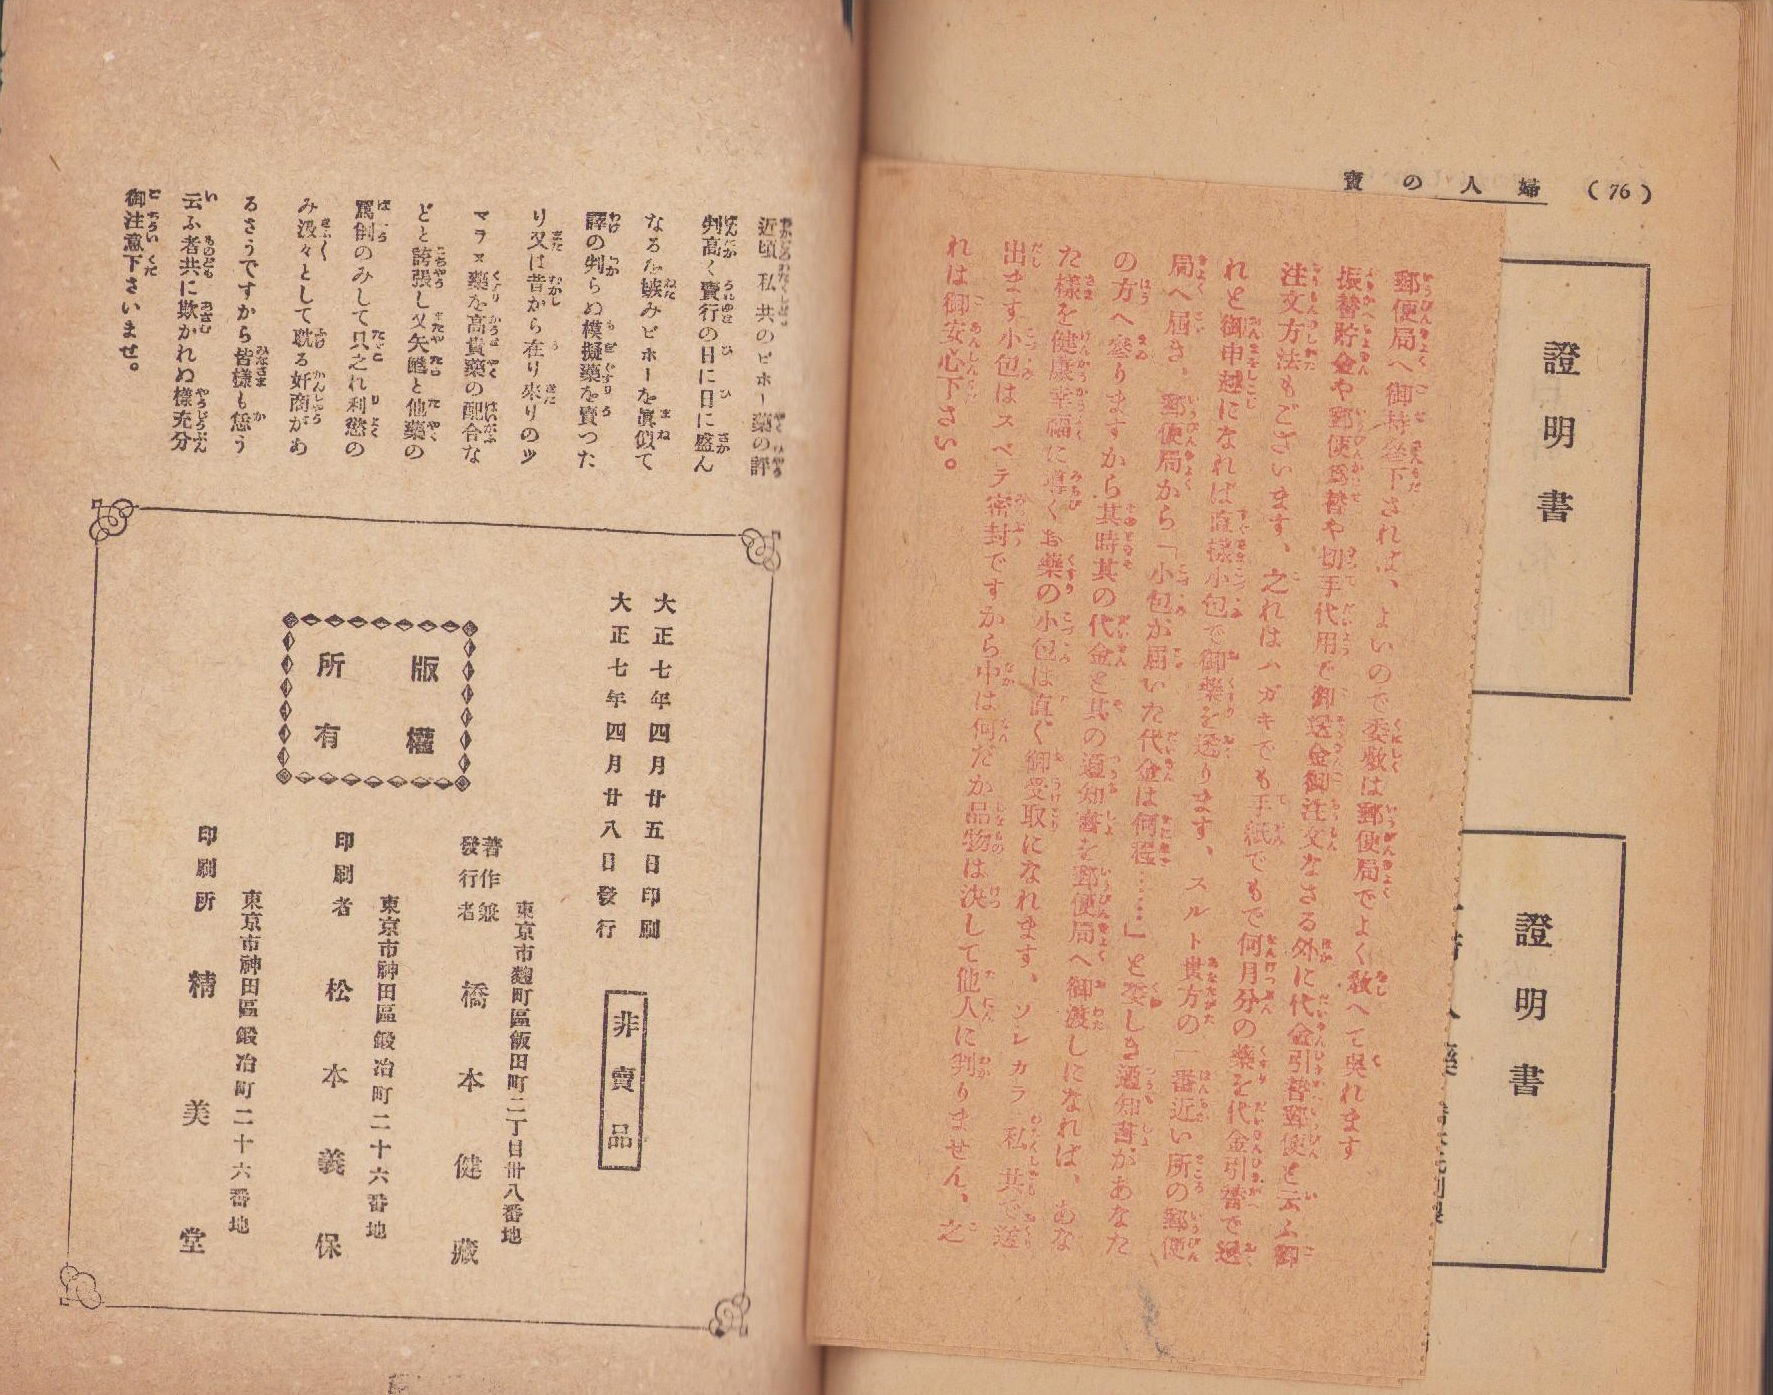 (76) 婦人の寶
證明書
證明書
郵便局へ御持參下されば、よいので委敷は郵便局でよく敎へて吳れます
振替貯金や郵便爲替や切手代用で御送金御注文なさる外に代金引替郵便と云ふ御
注文方法もございます、之れはハガキでも手紙でもで何月分の藥を代金引替で送
れと御申越になれば直樣小包で御藥を送ります、スルト貴方の一番近い所の郵便
局へ屆き、郵便局から「小包が屆いた代金は何程……」と委しき通知書があなた
の方へ參りますから其時其の代金と其の通知書を郵便局へ御渡しになれば、あな
た樣を健康幸福に導くお藥の小包は直ぐ御受取になれます、ソレカラ私共で差
出ます小包はスベテ密封ですから中は何だか品物は決して他人に判りません、之
れは御安心下さい。
近頃私共のピホー藥の評
判高く賣行の日に日に盛ん
なるを嫉みピホーを眞似て
譯の判らぬ模擬藥を賣つた
り又は昔から在り來りのツ
マラヌ藥を高貴藥の配合な
どと誇張し又矢鱈と他藥の
罵倒のみして只之れ利慾の
み汲々として耽る奸商があ
るさうですから皆樣も恁う
云ふ者共に欺かれぬ樣充分
御注意下さいませ。
大正七年四月廿五日印刷
大正七年四月廿八日發行
非賣品
版權
所有
東京市麴町區飯田町二丁目卅八番地
著作兼
發行者 橋本健藏
東京市神田區鍛冶町二十六番地
印刷者 松本義保
東京市神田區鍛冶町二十六番地
印刷所 精美堂